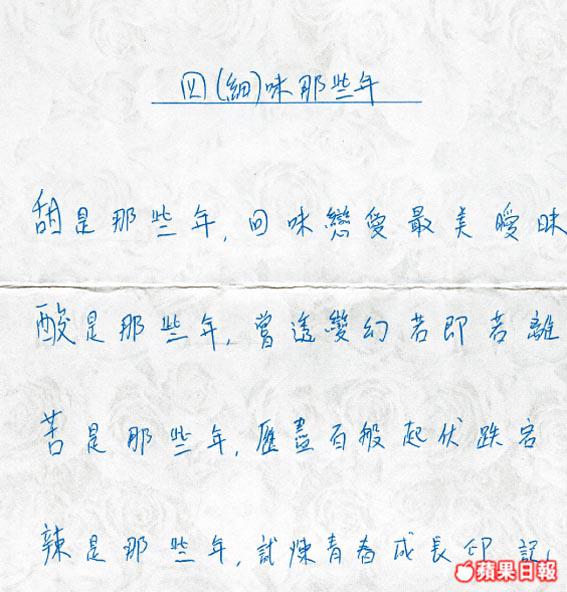 四(細)味那些年
甜是那些年,回味戀愛最美曖昧
酸是那些年,嘗透變幻若即若離
苦是那些年,歷盡百般起伏跌宕
辣是那些年,試煉青春成長印記
蘋果日報